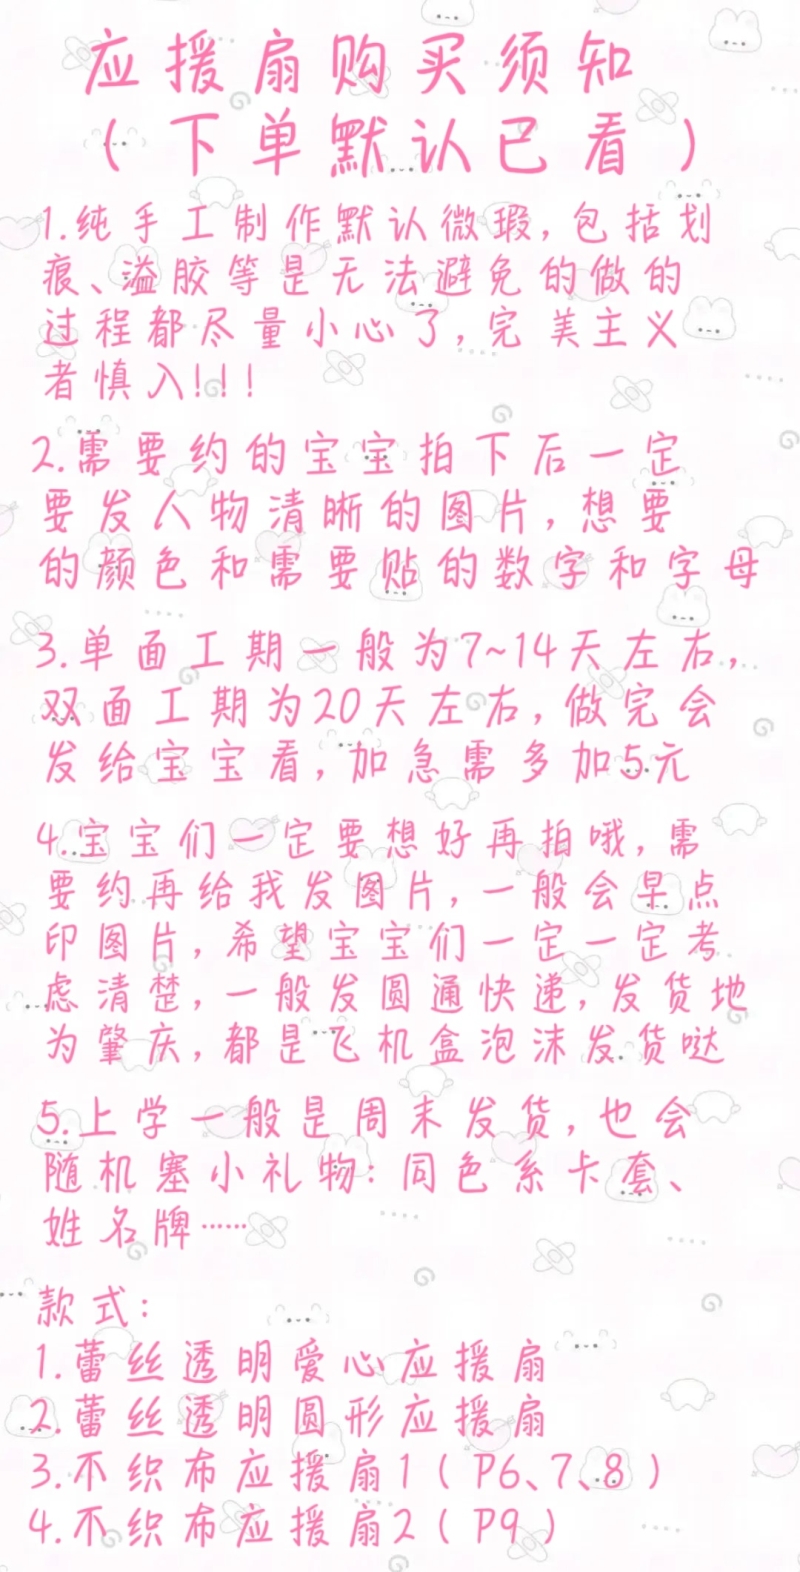 应援扇购买须知
（下单默认已看）
1.纯手工制作默认微瑕,包括划
痕、溢胶等是无法避免的做的
过程都尽量小心了,完美主义
者慎入!!!
2.需要约的宝宝拍下后一定
要发人物清晰的图片,想要
的颜色和需要贴的数字和字母
3.单面工期一般为7~14天左右,
双面工期为20天左右,做完会
发给宝宝看,加急需多加5元
4.宝宝们一定要想好再拍哦,需
要约再给我发图片,一般会早点
印图片,希望宝宝们一定一定考
虑清楚,一般发圆通快递,发货地
为肇庆,都是飞机盒泡沫发货哒
5.上学一般是周末发货,也会
随机塞小礼物:同色系卡套、
姓名牌……
款式:
1.蕾丝透明爱心应援扇
2.蕾丝透明圆形应援扇
3.不织布应援扇1（P6、7、8）
4.不织布应援扇2（P9）